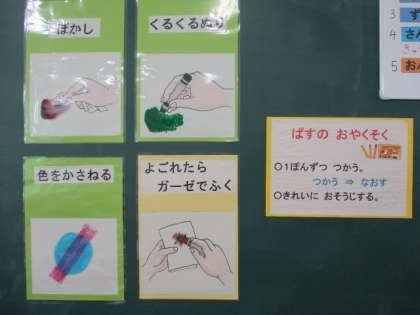 ぼかし
くるくるぬり
色をかさねる
よごれたら
ガーゼでふく
ぱすの おやくそく
○1ぽんずつ つかう。
つかう ⇒ なおす
○きれいに おそうじする。
3
4 さん
5